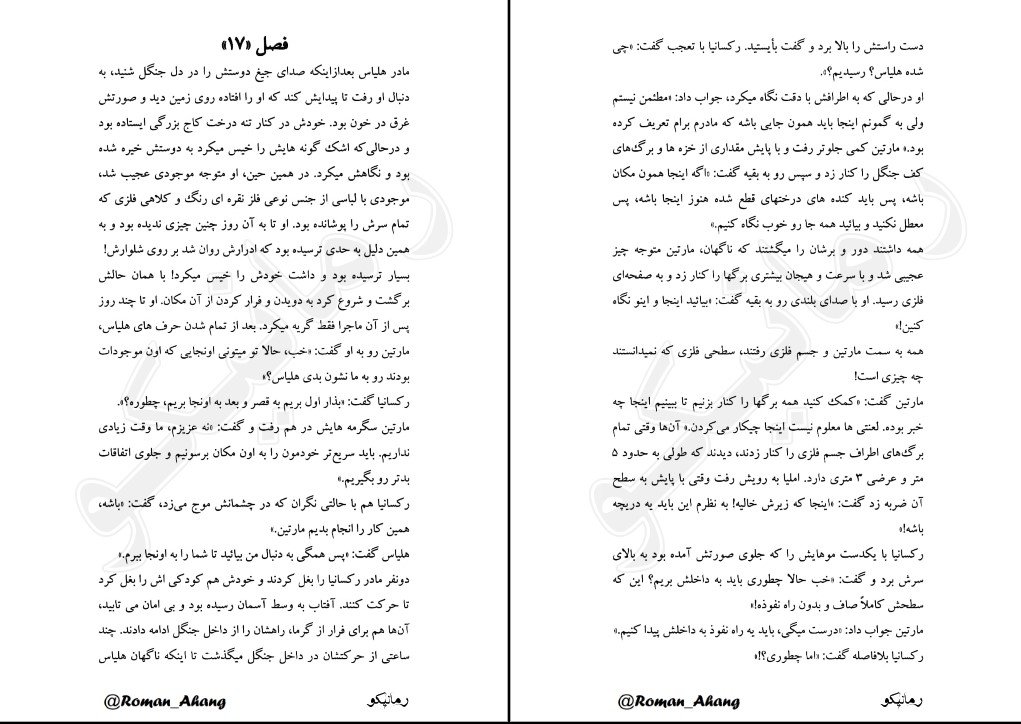 فصل «۱۷»
مادر هلیاس بعدازاینکه صدای جیغ دوستش را در دل جنگل شنید، به
دنبال او رفت تا پیدایش کند که او را افتاده روی زمین دید و صورتش
غرق در خون بود. خودش در کنار تنه درخت کاج بزرگی ایستاده بود
و درحالی‌که اشک گونه هایش را خیس میکرد به دوستش خیره شده
بود و نگاهش میکرد. در همین حین، او متوجه موجودی عجیب شد،
موجودی با لباسی از جنس نوعی فلز نقره ای رنگ و کلاهی فلزی که
تمام سرش را پوشانده بود. او تا به آن روز چنین چیزی ندیده بود و به
همین دلیل به حدی ترسیده بود که ادرارش روان شد بر روی شلوارش!
بسیار ترسیده بود و داشت خودش را خیس میکرد! با همان حالش
برگشت و شروع کرد به دویدن و فرار کردن از آن مکان. او تا چند روز
پس از آن ماجرا فقط گریه میکرد. بعد از تمام شدن حرف های هلیاس،
مارتین رو به او گفت: «خب، حالا تو میتونی اونجایی که اون موجودات
بودند رو به ما نشون بدی هلیاس؟»
رکسانیا گفت: «بذار اول بریم به قصر و بعد به اونجا بریم، چطوره؟».
مارتین سگرمه هایش در هم رفت و گفت: «نه عزیزم، ما وقت زیادی
نداریم. باید سریع‌تر خودمون را به اون مکان برسونیم و جلوی اتفاقات
بدتر رو بگیریم.»
رکسانیا هم با حالتی نگران که در چشمانش موج می‌زد، گفت: «باشه،
همین کار را انجام بدیم مارتین.»
هلیاس گفت: «پس همگی به دنبال من بیائید تا شما را به اونجا ببرم.»
دونفر مادر رکسانیا را بغل کردند و خودش هم کودکی اش را بغل کرد
تا حرکت کنند. آفتاب به وسط آسمان رسیده بود و بی امان می تابید،
آن‌ها هم برای فرار از گرما، راهشان را از داخل جنگل ادامه دادند. چند
ساعتی از حرکتشان در داخل جنگل میگذشت تا اینکه ناگهان هلیاس
رمانیکو
@Roman_Ahang
دست راستش را بالا برد و گفت بأیستید. رکسانیا با تعجب گفت: «چی
شده هلیاس؟ رسیدیم؟».
او درحالی که به اطرافش با دقت نگاه میکرد، جواب داد: «مطئمن نیستم
ولی به گمونم اینجا باید همون جایی باشه که مادرم برام تعریف کرده
بود.» مارتین کمی جلوتر رفت و با پایش مقداری از خزه ها و برگ‌های
کف جنگل را کنار زد و سپس رو به بقیه گفت: «اگه اینجا همون مکان
باشه، پس باید کنده های درختهای قطع شده هنوز اینجا باشه، پس
معطل نکنید و بیائید همه جا رو خوب نگاه کنیم.»
همه داشتند دور و برشان را میگشتند که ناگهان، مارتین متوجه چیز
عجیبی شد و با سرعت و هیجان بیشتری برگها را کنار زد و به صفحه‌ای
فلزی رسید. او با صدای بلندی رو به بقیه گفت: «بیائید اینجا و اینو نگاه
کنین!»
همه به سمت مارتین و جسم فلزی رفتند، سطحی فلزی که نمیدانستند
چه چیزی است!
مارتین گفت: «کمک کنید همه برگها را کنار بزنیم تا ببینیم اینجا چه
خبر بوده. لعنتی ها معلوم نیست اینجا چیکار می‌کردن.» آن‌ها وقتی تمام
برگ‌های اطراف جسم فلزی را کنار زدند، دیدند که طولی به حدود ۵
متر و عرضی ۳ متری دارد. املیا به رویش رفت وقتی با پایش به سطح
آن ضربه زد گفت: «اینجا که زیرش خالیه! به نظرم این باید یه دریچه
باشه!»
رکسانیا با یکدست موهایش را که جلوی صورتش آمده بود به بالای
سرش برد و گفت: «خب حالا چطوری باید به داخلش بریم؟ این که
سطحش کاملاً صاف و بدون راه نفوذه!»
مارتین جواب داد: «درست میگی، باید یه راه نفوذ به داخلش پیدا کنیم.»
رکسانیا بلافاصله گفت: «اما چطوری؟!»
رمانیکو
@Roman_Ahang